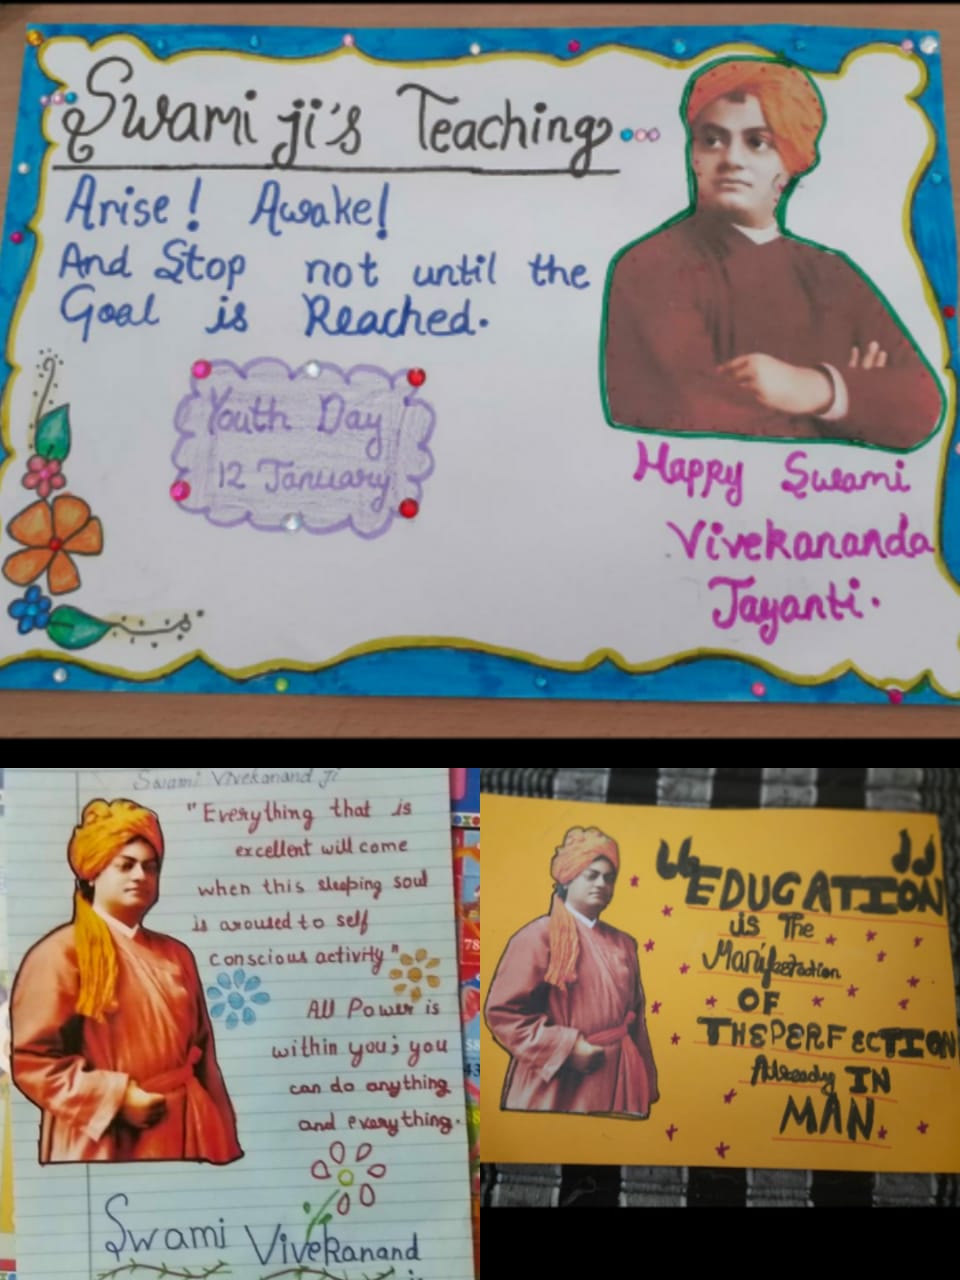 Swami ji's Teaching
Arise! Awake!
And Stop not until the
Goal is Reached.
Youth Day
12 January
Happy Swami
Vivekananda
Jayanti.
Swami Vivekanand Ji
"Everything that is
excellent will come
when this sleeping soul
is aroused to self
conscious activity"
All Power is
within you; you
can do anything
and everything.
Swami Vivekanand
"EDUCATION"
is The
Manifestation
OF
THEPERFECTION
Already IN
MAN